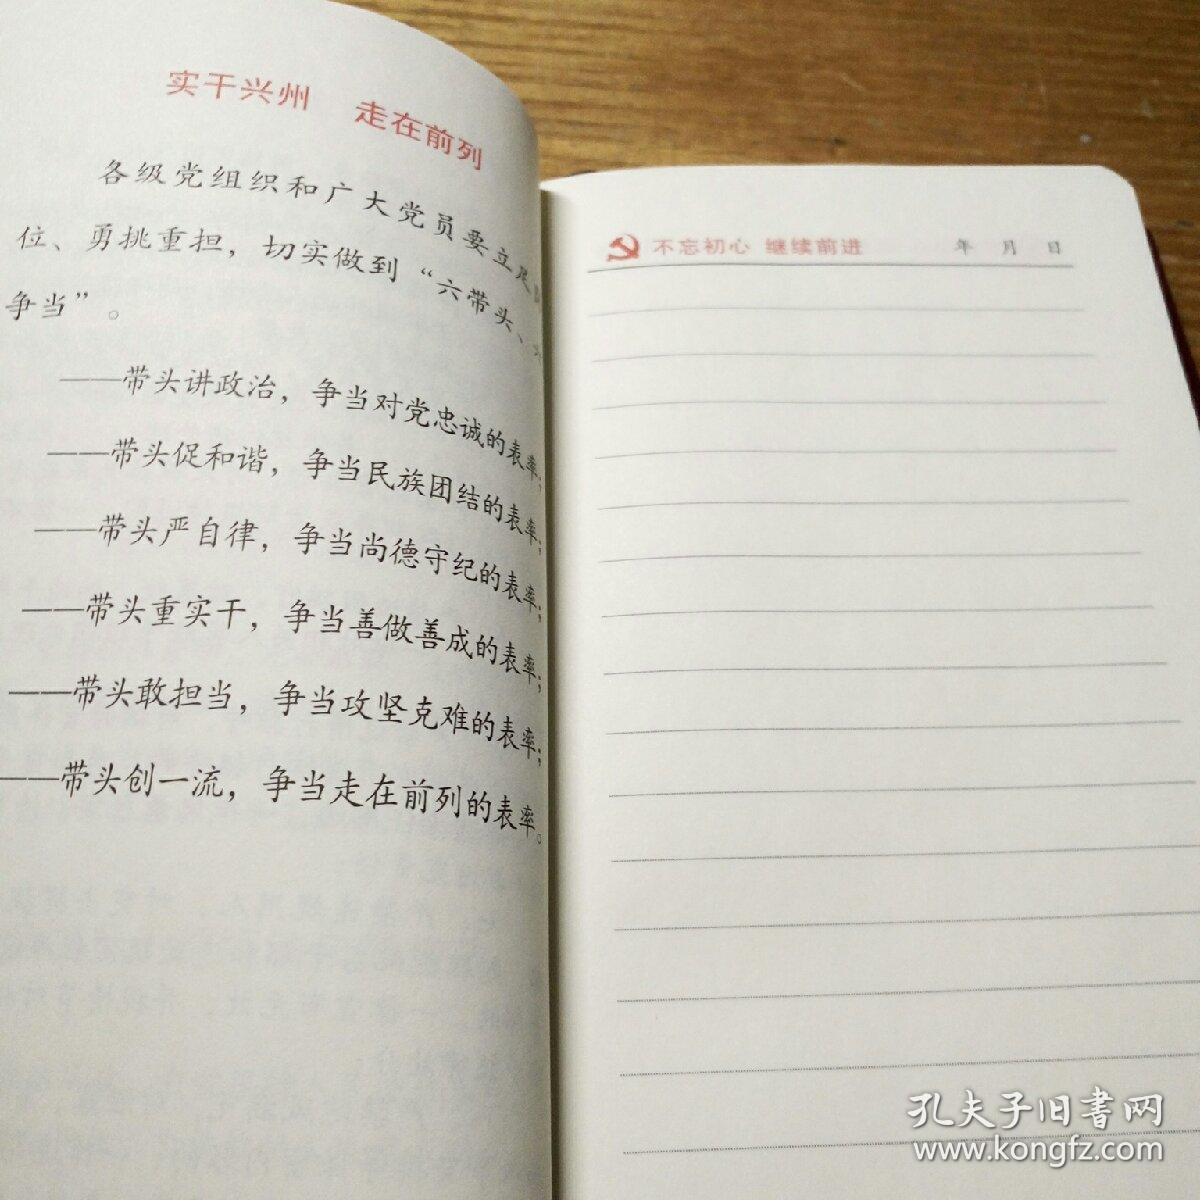 实干兴州 走在前列
各级党组织和广大党员要立足
位、勇挑重担，切实做到“六带头、
争当”。
——带头讲政治，争当对党忠诚的表率；
——带头促和谐，争当民族团结的表率；
——带头严自律，争当尚德守纪的表率；
——带头重实干，争当善做善成的表率；
——带头敢担当，争当攻坚克难的表率；
——带头创一流，争当走在前列的表率。
不忘初心 继续前进 年 月 日
孔夫子旧书网
www.kongfz.com